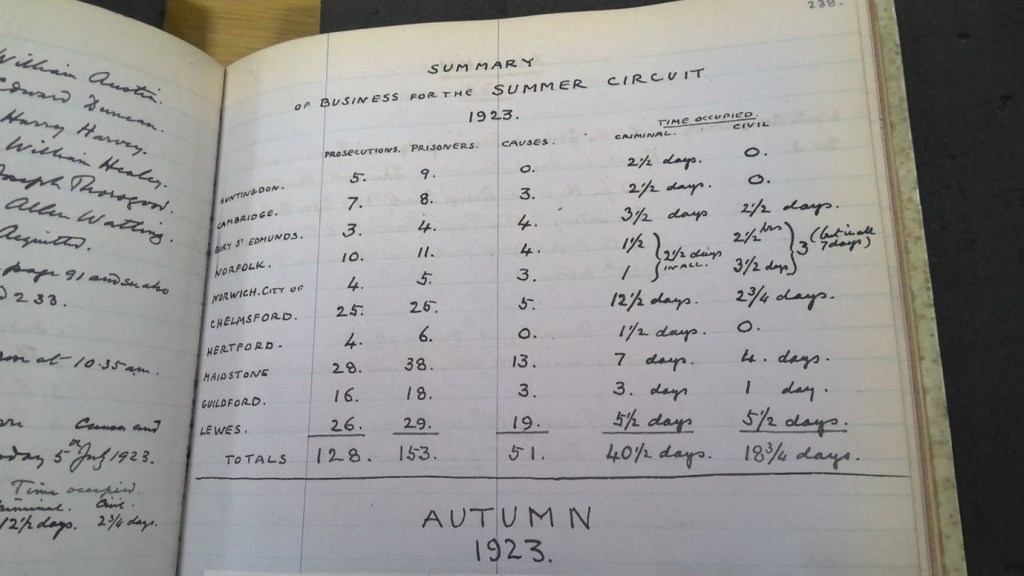 William Austin.
Edward Duncan.
Harry Harvey.
William Healey.
Joseph Thorogood.
Allen Watling.
Acquitted.
page 91 and see also
233.
at 10.35 am.
and
5 July 1923.
Time occupied.
Criminal. Civil.
12½ days. 2¾ days.
238.
SUMMARY
OF BUSINESS FOR THE SUMMER CIRCUIT
1923.
TIME OCCUPIED.
PROSECUTIONS. PRISONERS. CAUSES. CRIMINAL. CIVIL
HUNTINGDON. 5. 9. 0. 2½ days. 0.
CAMBRIDGE. 7. 8. 3. 2½ days. 0.
BURY ST EDMUNDS. 3. 4. 4. 3½ days 2½ days.
NORFOLK. 10. 11. 4. 1½ } 2½ days IN ALL. 2½ hrs } 3 (but in all 7 days)
NORWICH. CITY OF 4. 5. 3. 1 3½ days
CHELMSFORD. 25. 25. 5. 12½ days. 2¾ days.
HERTFORD. 4. 6. 0. 1½ days. 0.
MAIDSTONE 28. 38. 13. 7 days. 4. days.
GUILDFORD. 16. 18. 3. 3. days 1 day.
LEWES. 26. 29. 19. 5½ days 5½ days.
TOTALS 128. 153. 51. 40½ days. 18¾ days.
AUTUMN
1923.